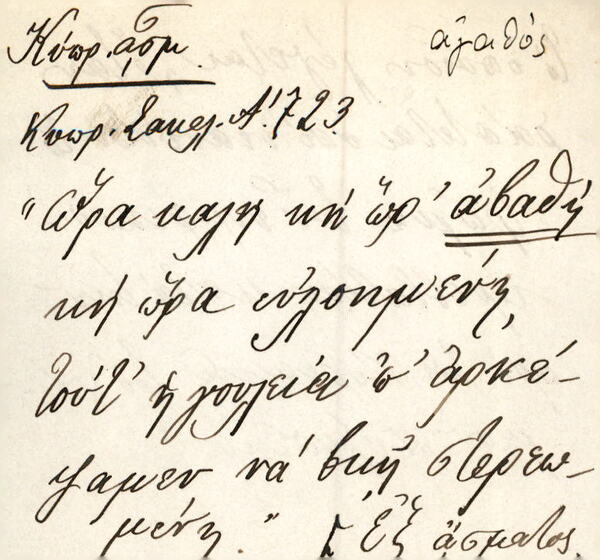 Κύπρ. ᾆσμ. ἀγαθός
Κυπρ. Σακελ. Α'. 723.
"Ὥρα καλὴ κὴ ὥρ' ἀβαθὴ
κὴ ὥρα εὐλοημένη,
τούτ' ἡ δουλειὰ π' ἀρκέ-
ψαμεν νὰ βκῇ στερεω-
μένη." Ἐξ ᾄσματος